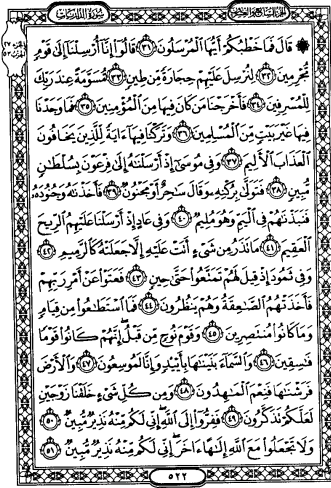 الجزء السابع والعشرون
سورة الذاريات
۞ قَالَ فَمَا خَطْبُكُمْ أَيُّهَا ٱلْمُرْسَلُونَ ٣١ قَالُوٓا۟ إِنَّآ أُرْسِلْنَآ إِلَىٰ قَوْمٍ
مُّجْرِمِينَ ٣٢ لِنُرْسِلَ عَلَيْهِمْ حِجَارَةً مِّن طِينٍ ٣٣ مُّسَوَّمَةً عِندَ رَبِّكَ
لِلْمُسْرِفِينَ ٣٤ فَأَخْرَجْنَا مَن كَانَ فِيهَا مِنَ ٱلْمُؤْمِنِينَ ٣٥ فَمَا وَجَدْنَا
فِيهَا غَيْرَ بَيْتٍ مِّنَ ٱلْمُسْلِمِينَ ٣٦ وَتَرَكْنَا فِيهَآ ءَايَةً لِّلَّذِينَ يَخَافُونَ
ٱلْعَذَابَ ٱلْأَلِيمَ ٣٧ وَفِى مُوسَىٰٓ إِذْ أَرْسَلْنَٰهُ إِلَىٰ فِرْعَوْنَ بِسُلْطَٰنٍ
مُّبِينٍ ٣٨ فَتَوَلَّىٰ بِرُكْنِهِۦ وَقَالَ سَٰحِرٌ أَوْ مَجْنُونٌ ٣٩ فَأَخَذْنَٰهُ وَجُنُودَهُۥ
فَنَبَذْنَٰهُمْ فِى ٱلْيَمِّ وَهُوَ مُلِيمٌ ٤٠ وَفِى عَادٍ إِذْ أَرْسَلْنَا عَلَيْهِمُ ٱلرِّيحَ
ٱلْعَقِيمَ ٤١ مَا تَذَرُ مِن شَىْءٍ أَتَتْ عَلَيْهِ إِلَّا جَعَلَتْهُ كَٱلرَّمِيمِ ٤٢
وَفِى ثَمُودَ إِذْ قِيلَ لَهُمْ تَمَتَّعُوا۟ حَتَّىٰ حِينٍ ٤٣ فَعَتَوْا۟ عَنْ أَمْرِ رَبِّهِمْ
فَأَخَذَتْهُمُ ٱلصَّٰعِقَةُ وَهُمْ يَنظُرُونَ ٤٤ فَمَا ٱسْتَطَٰعُوا۟ مِن قِيَامٍ
وَمَا كَانُوا۟ مُنتَصِرِينَ ٤٥ وَقَوْمَ نُوحٍ مِّن قَبْلُ إِنَّهُمْ كَانُوا۟ قَوْمًا
فَٰسِقِينَ ٤٦ وَٱلسَّمَآءَ بَنَيْنَٰهَا بِأَيْي۟دٍ وَإِنَّا لَمُوسِعُونَ ٤٧ وَٱلْأَرْضَ
فَرَشْنَٰهَا فَنِعْمَ ٱلْمَٰهِدُونَ ٤٨ وَمِن كُلِّ شَىْءٍ خَلَقْنَا زَوْجَيْنِ
لَعَلَّكُمْ تَذَكَّرُونَ ٤٩ فَفِرُّوٓا۟ إِلَى ٱللَّهِ إِنِّى لَكُم مِّنْهُ نَذِيرٌ مُّبِينٌ ٥٠
وَلَا تَجْعَلُوا۟ مَعَ ٱللَّهِ إِلَٰهًا ءَاخَرَ إِنِّى لَكُم مِّنْهُ نَذِيرٌ مُّبِينٌ ٥١
٥٢٢